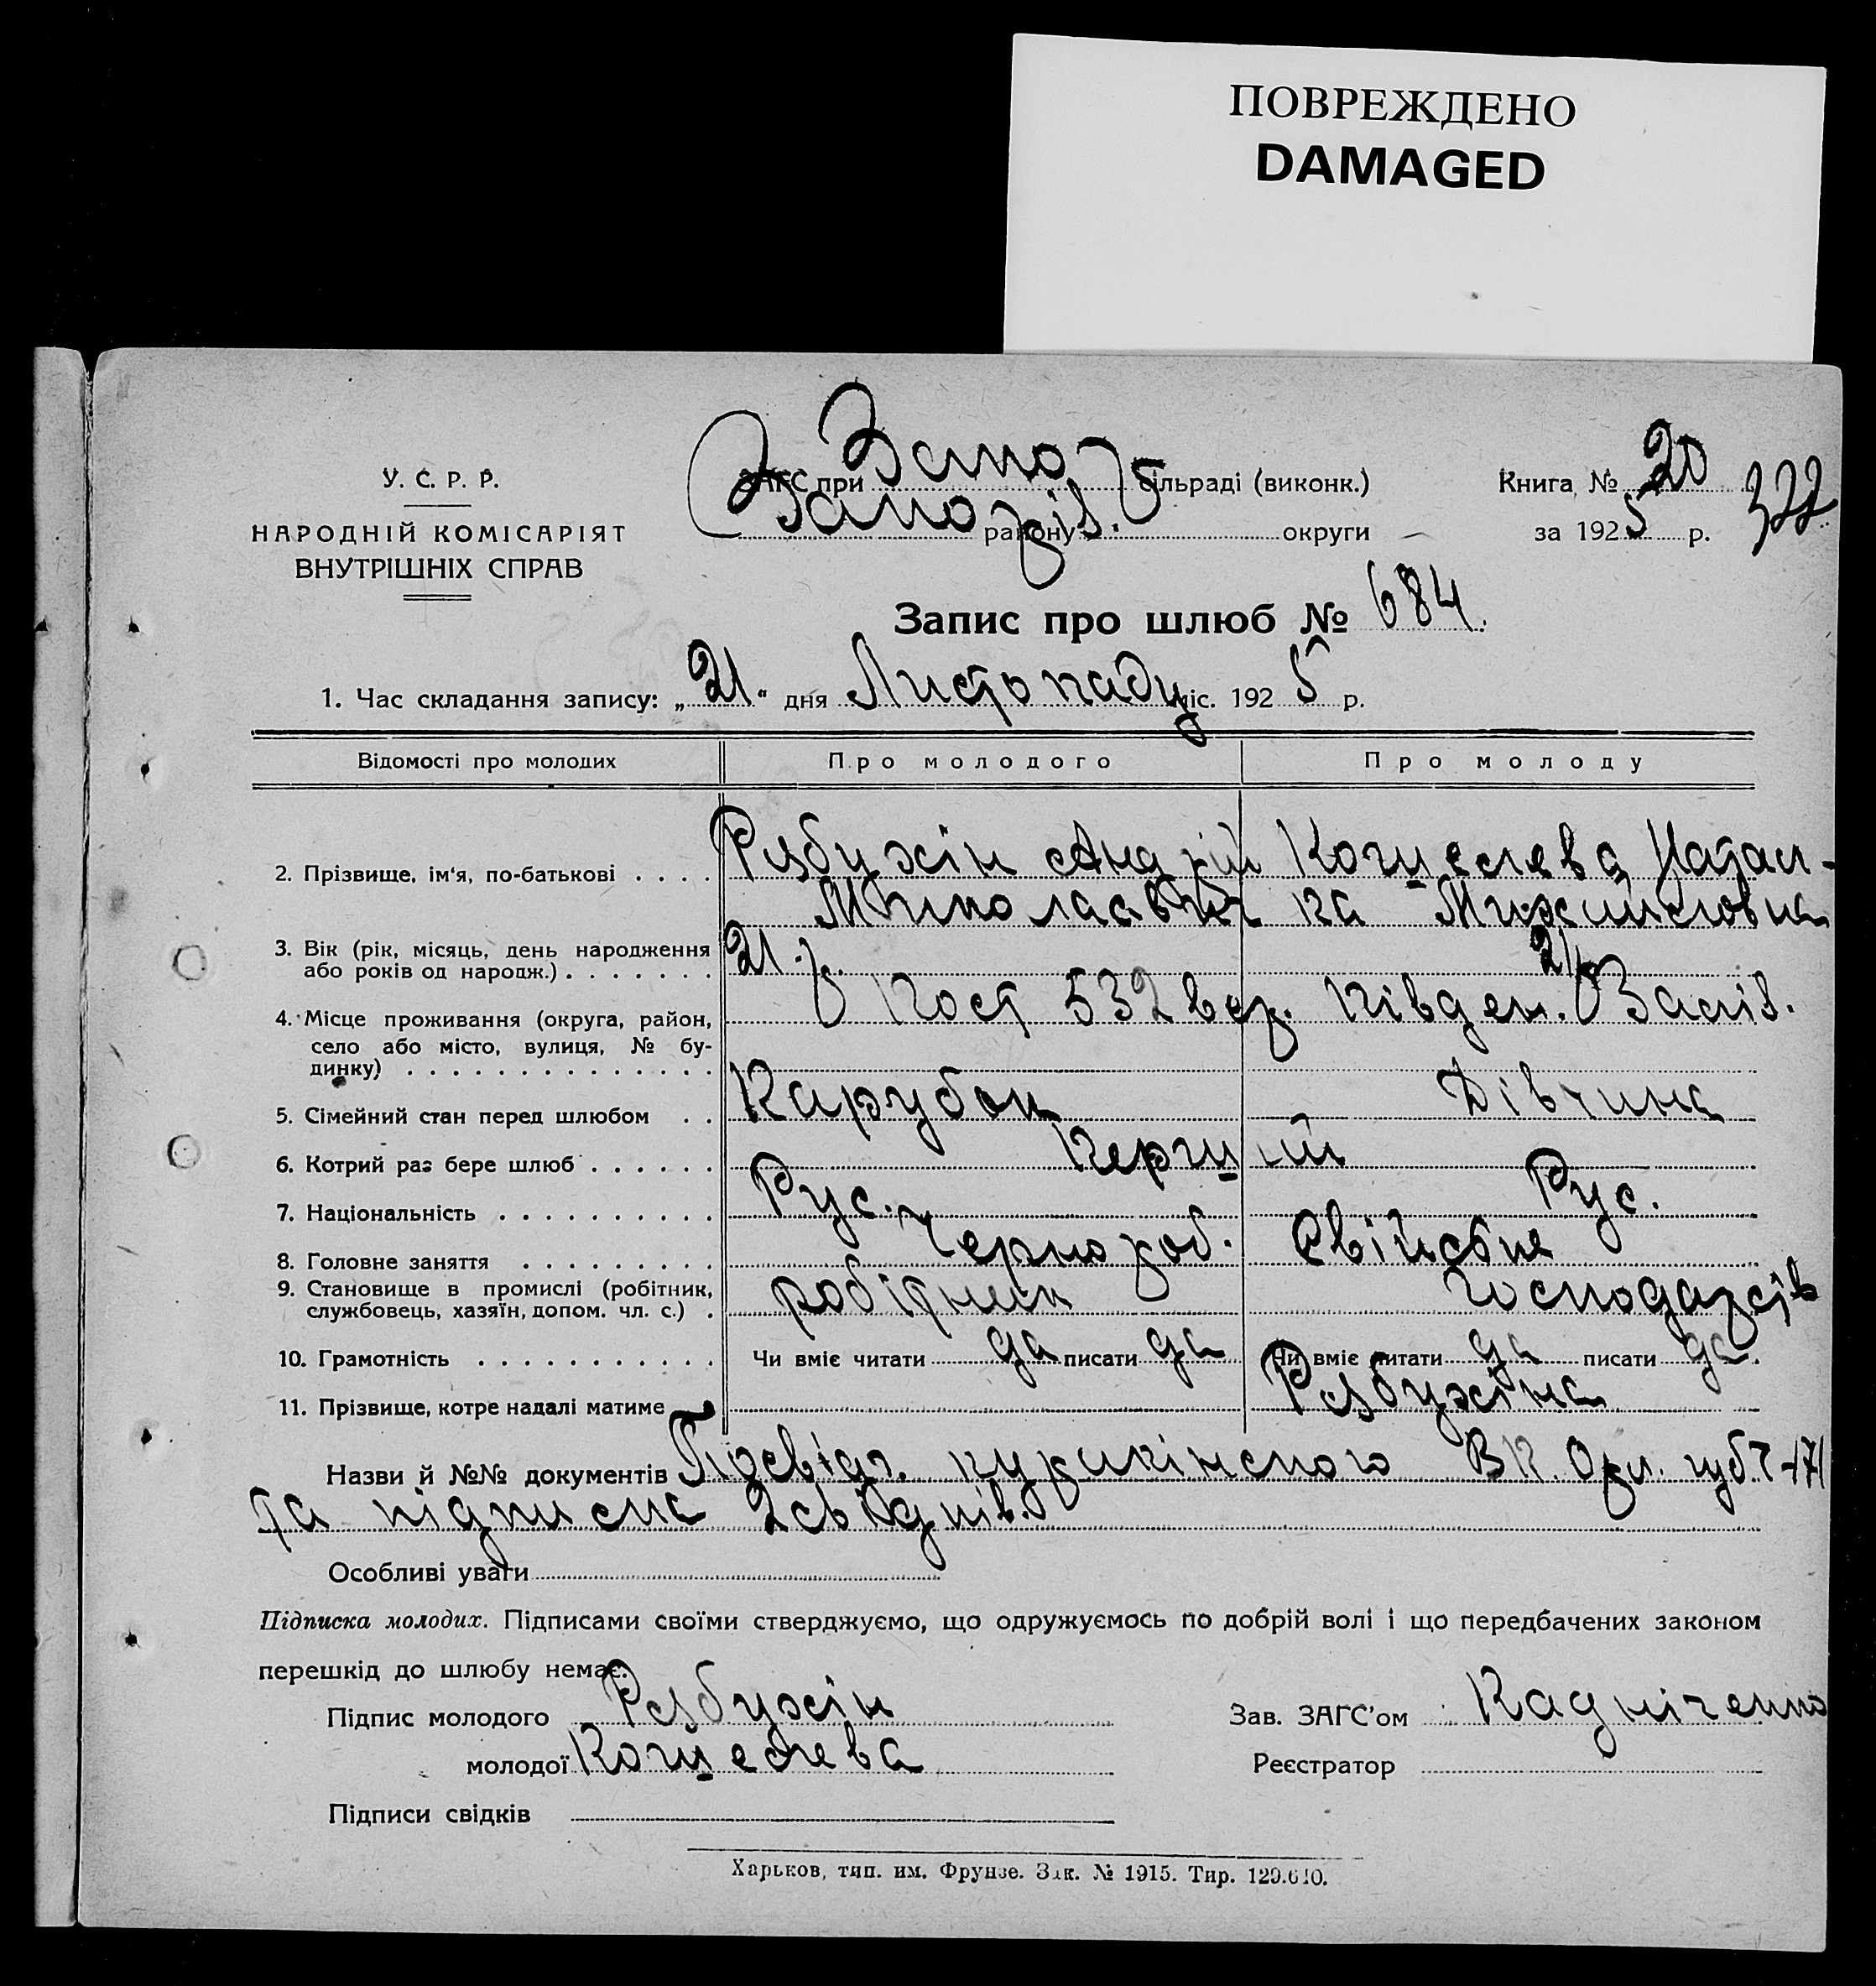 ПОВРЕЖДЕНО
DAMAGED
У. С. Р. Р.
НАРОДНІЙ КОМІСАРІЯТ
ВНУТРІШНІХ СПРАВ
ЗАГС при Запо Сільраді (виконк.)
Запоріз. району округи
Книга № 20
322
за 1925 р.
Запис про шлюб № 684.
1. Час складання запису: „21“ дня Листопаду міс. 1925 р.
Відомості про молодих Про молодого Про молоду
2. Прізвище, ім‘я, по-батькові . . . . Рябухін Андрій Миколаєвич
Натал-ка Михайловна
3. Вік (рік, місяць, день народження або років од народж.) . . . . . . . 21 р. 21 р.
4. Місце проживання (округа, район, село або місто, вулиця, № будинку) . . . . . . . . . . . . . . . Пост 532 вер. Півден. Заліз.
5. Сімейний стан перед шлюбом . . Парубок Дівчина
6. Котрий раз бере шлюб . . . . . . Перший
7. Національність . . . . . . . . . . Рус. Рус.
8. Головне заняття . . . . . . . . . Чорнороб. Свійське
9. Становище в промислі (робітник, службовець, хазяїн, допом. чл. с.) . робітник господарств
10. Грамотність . . . . . . . . . . . Чи вміє читати да писати да Чи вміє читати да писати да.
11. Прізвище, котре надалі матиме Рябухіна
Назви й №№ документів Посвідч. ВК. Орл. губ.
та підписка 2 свідків.
Особливі уваги
Підписка молодих. Підписами своїми стверджуємо, що одружуємось по добрій волі і що передбачених законом
перешкід до шлюбу немає.
Підпис молодого Рябухін Зав. ЗАГС’ом
молодої Реєстратор
Підписи свідків
Харьков, тип. им. Фрунзе. Зак. № 1915. Тир.